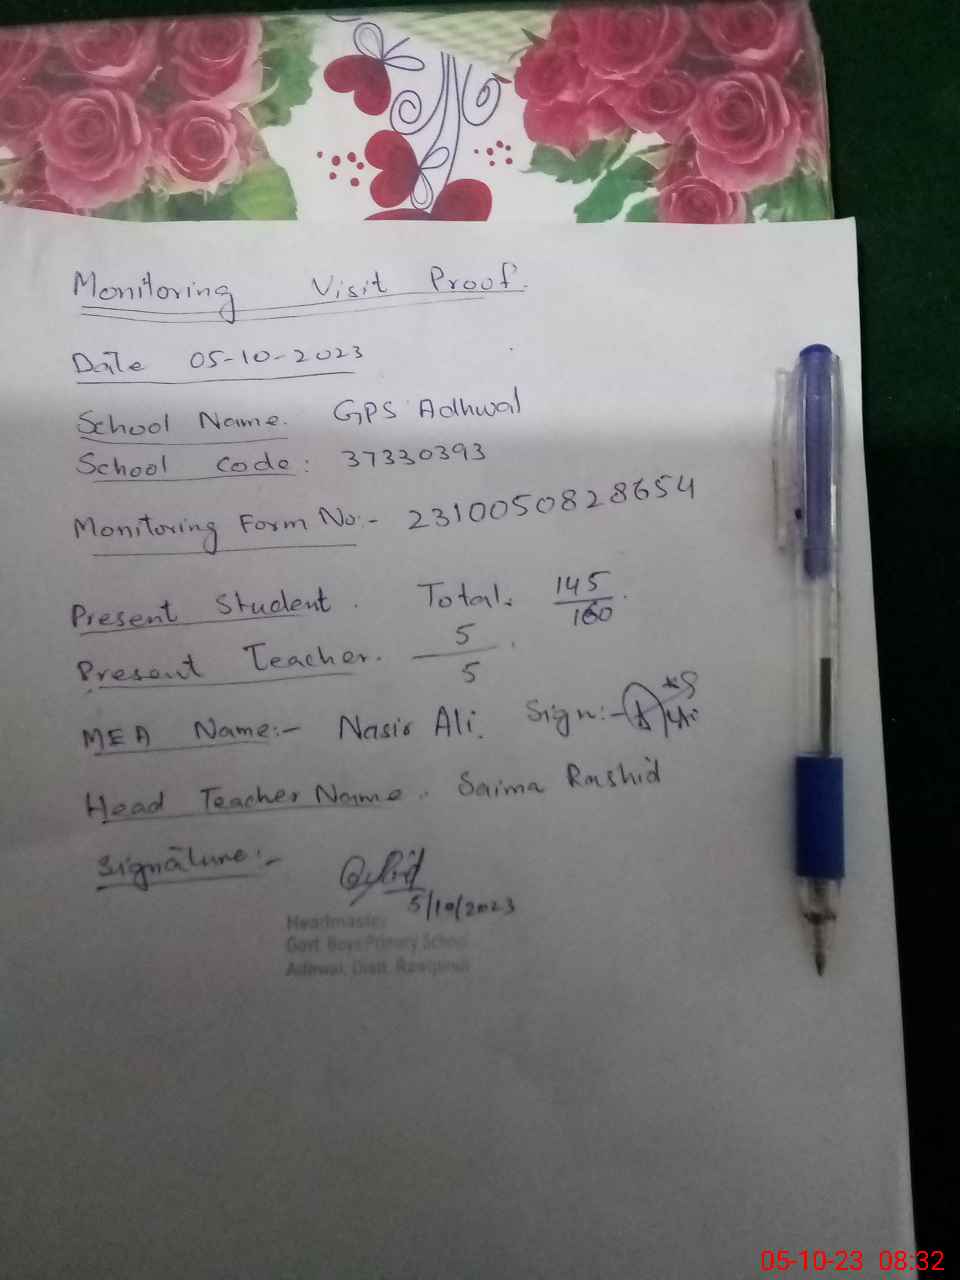 Monitoring Visit Proof.
Date 05-10-2023
School Name. GPS Adhwal
School Code: 37330393
Monitoring Form No:- 2310050828654
Present Student. Total. 145/160
Present Teacher. 5/5
MEA Name:- Nasir Ali. Sign:-
Head Teacher Name. Saima Rashid
Signature:-
5/10/2023
Headmaster
Govt. Boys Primary School
Adhwal, Distt. Rawalpindi
05-10-23 08:32